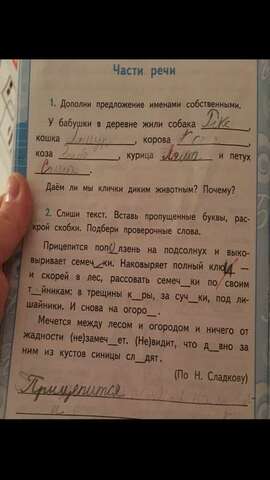 Части речи
1. Дополни предложение именами собственными.
У бабушки в деревне жили собака
кошка , корова ,
коза , курица и петух
Даём ли мы клички диким животным? Почему?
2. Спиши текст. Вставь пропущенные буквы, рас-
крой скобки. Подбери проверочные слова.
Прицепится поп0лзень на подсолнух и выко-
выривает семеч_ки. Наковыряет полный клю —
и скорей в лес, рассовать семеч_ки по своим
т_йникам: в трещины к_ры, за суч_ки, под ли-
шайники. И снова на огоро_.
Мечется между лесом и огородом и ничего от
жадности (не)замеч_ет. (Не)видит, что д_вно за
ним из кустов синицы сл_дят.
(По Н. Сладкову)
Прицепится